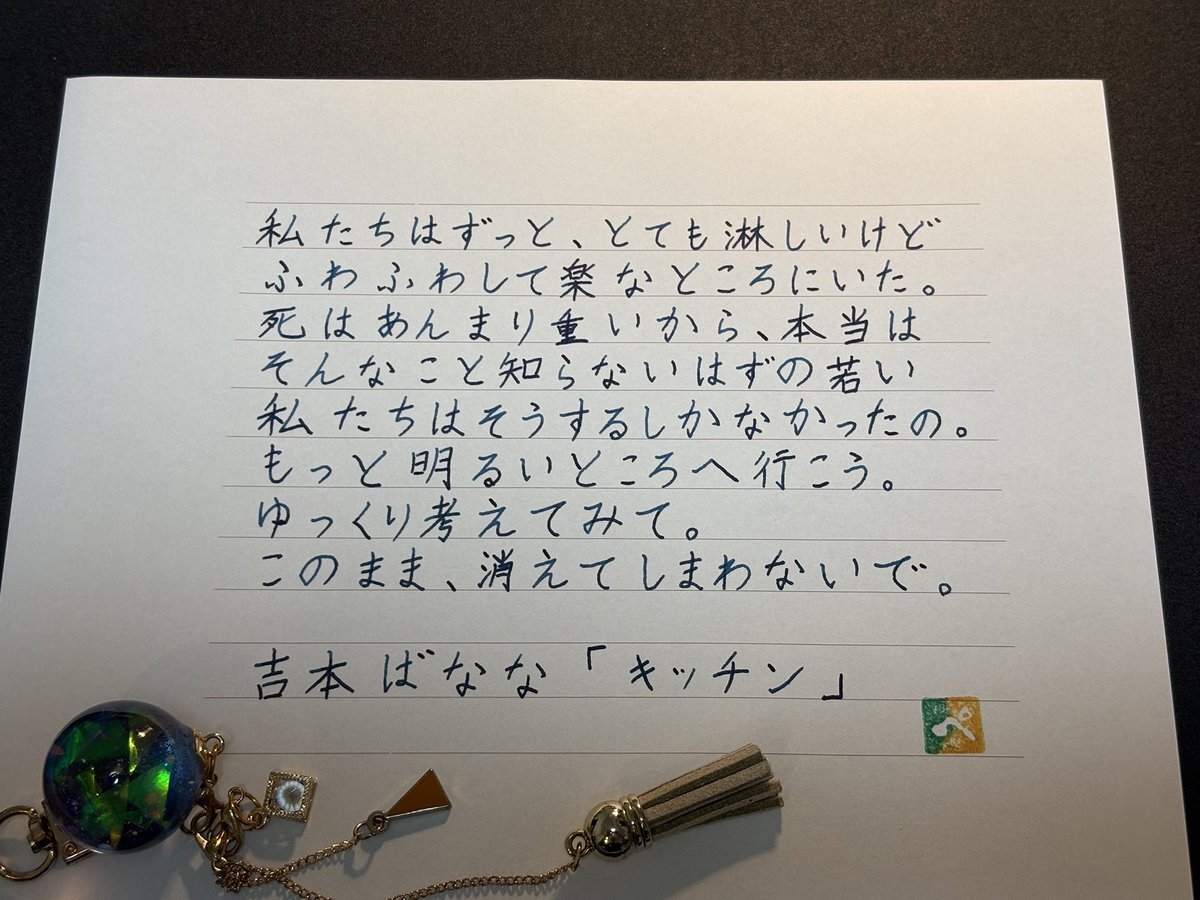 私たちはずっと、とても淋しいけど
ふわふわして楽なところにいた。
死はあんまり重いから、本当は
そんなこと知らないはずの若い
私たちはそうするしかなかったの。
もっと明るいところへ行こう。
ゆっくり考えてみて。
このまま、消えてしまわないで。
吉本ばなな「キッチン」